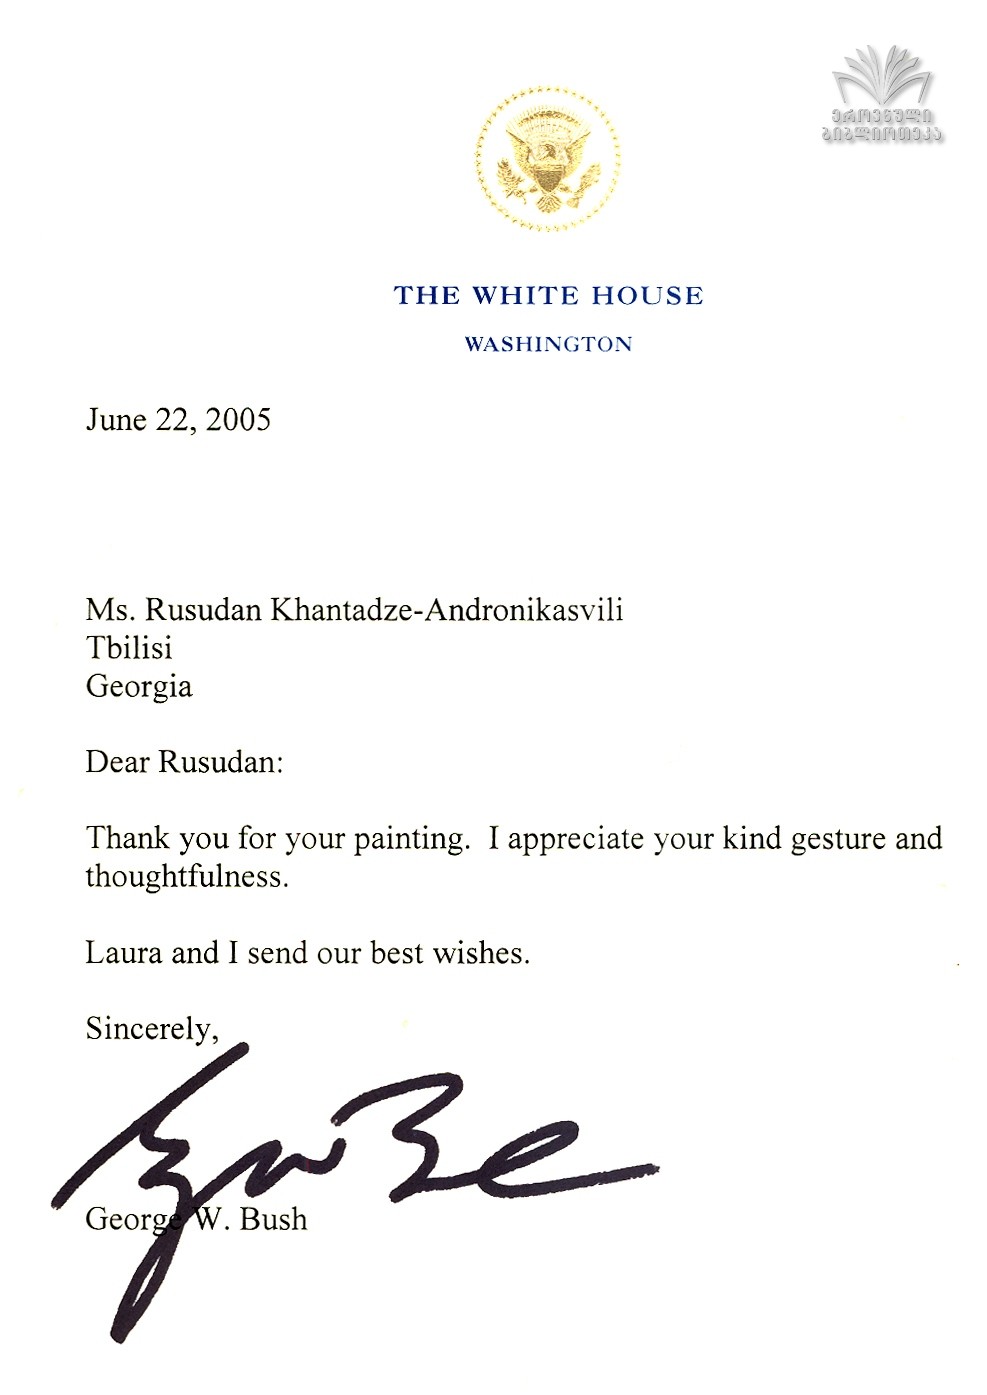 ეროვნული
ბიბლიოთეკა
THE WHITE HOUSE
WASHINGTON
June 22, 2005
Ms. Rusudan Khantadze-Andronikasvili
Tbilisi
Georgia
Dear Rusudan:
Thank you for your painting. I appreciate your kind gesture and
thoughtfulness.
Laura and I send our best wishes.
Sincerely,
George W. Bush